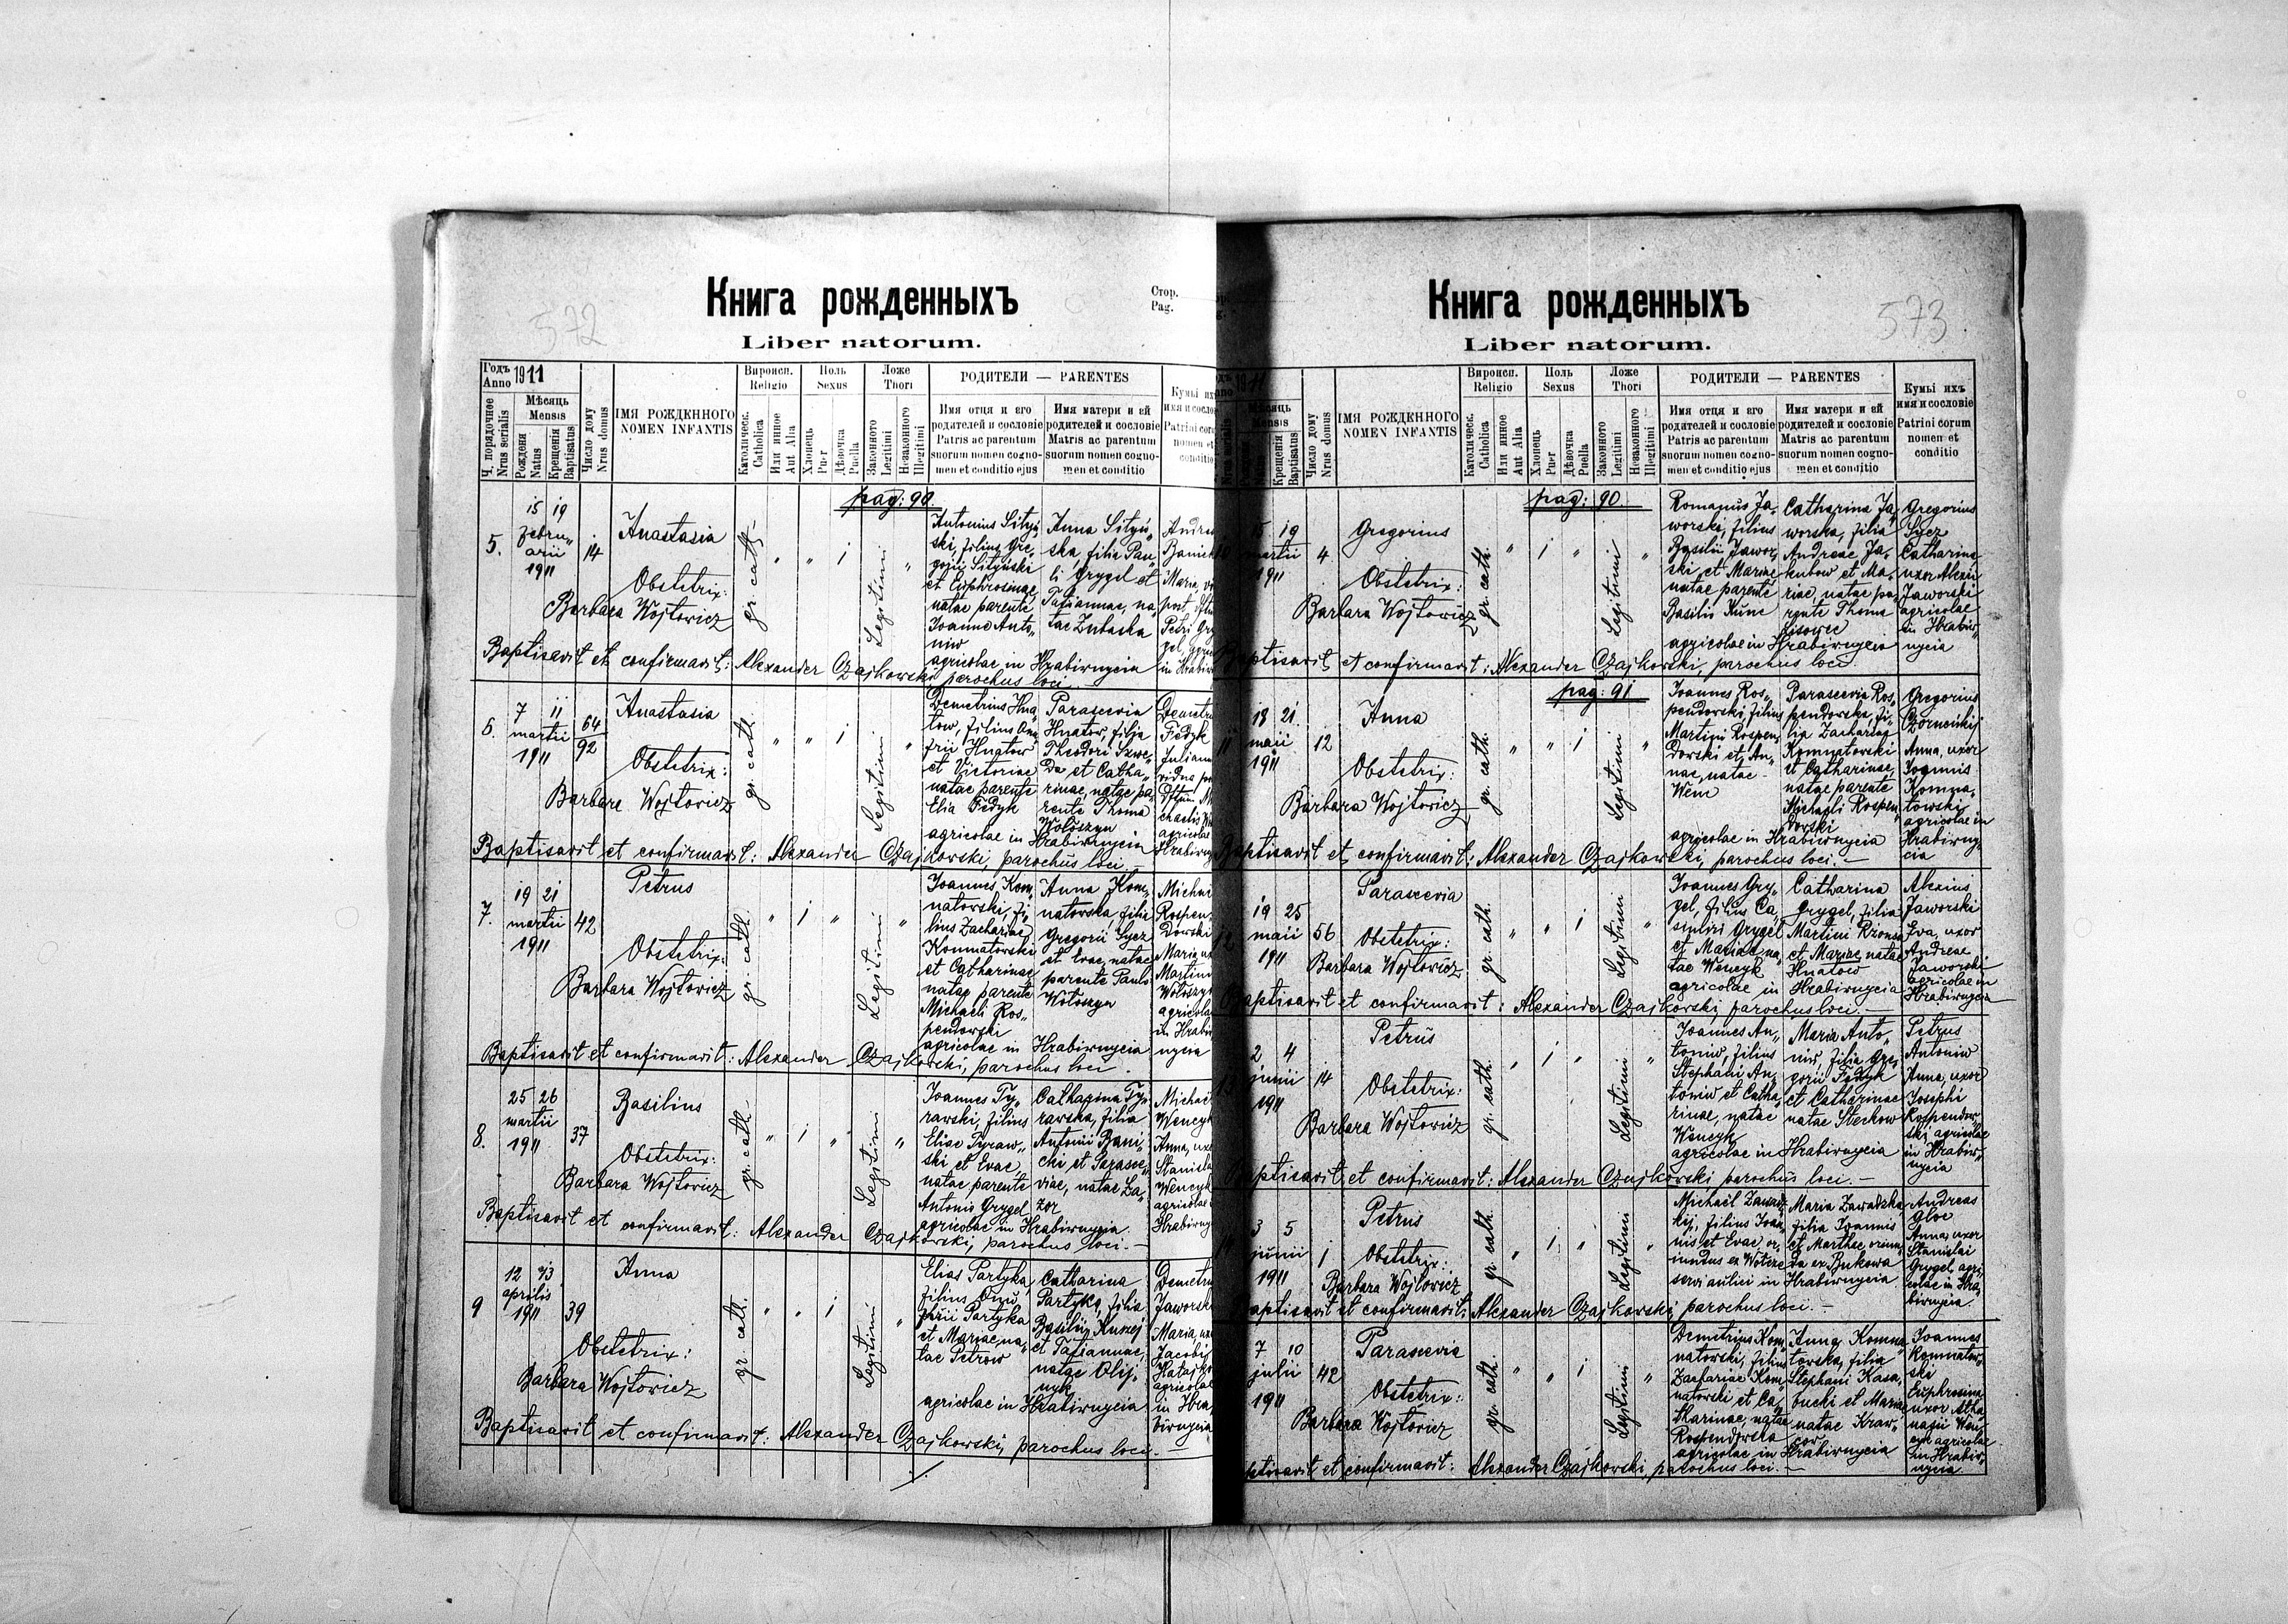 572
Книга рожденныхъ
Стор.
Pag.
Liber natorum.
Годъ Anno 1911
Мѣсяць Mensis
Ч. порядочное Nrus serialis
Рождения Natus
Крещенія Baptisatus
Число дому Nrus domus
ІМЯ РОЖДЕННОГО
NOMEN INFANTIS
Вироисп. Religio
Католическ. Catholica
Или инное Aut Alia
Поль Sexus
Хлопець Puer
Дѣвочка Puella
Ложе Thori
Законного Legitimi
Незаконного Illegitimi
РОДИТЕЛИ — PARENTES
Имя отця и его
родителей и сословіе
Patris ac parentum
suorum nomen cogno-
men et conditio ejus
Имя матери и ей
родителей и сословіе
Matris ac parentum
suorum nomen cogno-
men et conditio
Кумы их
имя и сосло
Patrini coru
nomen et
conditio
pag: 90.
5.
15 19
Febru„
arii
1911
14
Anastasia
Obstetrix:
Barbara Wojtowicz
gr. cath.
„ „ i
Legitimi
„
Antonius Sityń„
ski, filius Gre„
gorii Sityński
et Euphrosinae,
natae parente
Joanne Anto„
niw
Anna Sityń„
ska, filia Pau„
li Grygel et
Tatiannae, na„
tae Zubacka
agricolae in Hrabiwnycia
Baptisavit et confirmavit: Alexander Czajkowski, parochus loci.
6.
7 11
martii
1911
64
92
Anastasia
Obstetrix:
Barbara Wojtowicz
gr. cath.
„ „ i
Legitimi
„
Demetrius Hna„
tow, filius Onu„
frii Hnatow
et Victoriae
natae parente
Elia Fedyk
Parascevia
Hnatow, filia
Theodori Szwe„
da et Catha„
rinae, natae pa„
rente Thoma
Wołoszyn
agricolae in Hrabiwnycia
Baptisavit et confirmavit: Alexander Czajkowski, parochus loci. —
7.
19 21
martii
1911
42
Petrus
Obstetrix:
Barbara Wojtowicz
gr. cath.
„ i „
Legitimi
„
Joannes Kom„
natowski, fi„
lius Zachariae
Komnatowski
et Catharinae,
natae parente
Michaeli Ros„
pendowski
Anna Kom„
natowska, filia
Gregorii Sycz
et Evae, natae
parente Paulo
Wołoszyn
agricolae in Hrabiwnycia
Baptisavit et confirmavit: Alexander Czajkowski, parochus loci.
8.
25 26
martii
1911
37
Basilius
Obstetrix:
Barbara Wojtowicz
gr. cath.
„ i „
Legitimi
„
Joannes Ty„
rawski, filius
Eliae Tyraw„
ski et Evae,
natae parente
Antonio Grygel
Catharina Ty„
rawska, filia
Antonii Bani„
cki et Parasce„
viae, natae Ła„
zor
agricolae in Hrabiwnycia.
Baptisavit et confirmavit: Alexander Czajkowski, parochus loci. —
9
12 13
aprilis
1911
39
Anna
Obstetrix:
Barbara Wojtowicz
gr. cath.
„ „ i
Legitimi
„
Elias Partyka,
filius Onu„
phrii Partyka
et Mariae, na„
tae Petrow
Catharina
Partyka, filia
Basilii Kuszej
et Tatiannae,
natae Olij„
nyk
agricolae in Hrabiwnycia
Baptisavit et confirmavit: Alexander Czajkowski, parochus loci. —
573
Книга рожденныхъ
Liber natorum.
Мѣсяць Mensis
Крещенія Baptisatus
Число дому Nrus domus
ІМЯ РОЖДЕННОГО
NOMEN INFANTIS
Вироисп. Religio
Католическ. Catholica
Или инное Aut Alia
Поль Sexus
Хлопець Puer
Дѣвочка Puella
Ложе Thori
Законного Legitimi
Незаконного Illegitimi
РОДИТЕЛИ — PARENTES
Имя отця и его
родителей и сословіе
Patris ac parentum
suorum nomen cogno-
men et conditio ejus
Имя матери и ей
родителей и сословіе
Matris ac parentum
suorum nomen cogno-
men et conditio
Кумы ихъ
имя и сословіе
Patrini corum
nomen et
conditio
pag: 90.
15 19
martii
1911
4
Gregorius
Obstetrix:
Barbara Wojtowicz
gr. cath.
„ i „
Legitimi
„
Romanus Ja„
worski, filius
Basilii Jawor„
ski et Mariae
natae parente
Basilio Kunc
Catharina Ja„
worska, filia
Andreae Ja„
kubow et Ma„
riae, natae pa„
rente Thoma
Lisowec
agricolae in Hrabiwnycia
Gregorius
Sycz
Catharina
uxor Alexii
Jaworski
agricolae
in Hrabiw„
nycia
Baptisavit et confirmavit: Alexander Czajkowski, parochus loci.
pag: 91
11
18 21.
maii
1911
12
Anna
Obstetrix:
Barbara Wojtowicz
gr. cath.
„ „ i
Legitimi
„
Joannes Ros„
pendowski, filius
Martini Rospen„
dowski et An„
nae, natae
Wenc
Parascevia Ros„
pendowska, fi„
lia Zachariae
Komnatowski
et Catharinae,
natae parente
Michaeli Rospen„
dowski
agricolae in Hrabiwnycia
Gregorius
Czornońkij
Anna, uxor
Joannis
Komna„
towski
agricolae in
Hrabiwny„
cia
Baptisavit et confirmavit: Alexander Czajkowski, parochus loci. —
12
19 25
maii
1911
56
Parascevia
Obstetrix:
Barbara Wojtowicz
gr. cath.
„ „ i
Legitimi
„
Joannes Gry„
gel, filius Ca„
simiri Grygel
et Mariae, na„
tae Wencyk
Catharina
Grygel, filia
Martini Rzonsa
et Mariae natae
Hnatow
agricolae in Hrabiwnycia
Alexius
Jaworski
Eva, uxor
Andreae
Jaworski
agricolae in
Hrabiwnycia
Baptisavit et confirmavit: Alexander Czajkowski, parochus loci. —
2 4
junii
1911
14
Petrus
Obstetrix:
Barbara Wojtowicz
gr. cath.
„ i „
Legitimi
„
Joannes An„
toniw, filius
Stephani An„
toniw et Catha„
rinae, natae
Wencyk
Maria Anto„
niw, filia Gre„
gorii Fedyk
et Catharinae
natae Steckow
agricolae in Hrabiwnycia
Petrus
Antoniw
Anna, uxor
Josephi
Rospendow„
ski agricolae
in Hrabiw„
nycia
Baptisavit et confirmavit: Alexander Czajkowski parochus loci. —
3 5
junii
1911
1
Petrus
Obstetrix:
Barbara Wojtowicz
gr. cath.
„ i „
Legitimi
„
Michaël Zawadz„
kij, filius Joan„
nis et Evae or„
iundus ex
Maria Zawadzka,
filia Joannis
et Marthae oriun„
da ex Bukowa
servi aulici in Hrabiwnycia
Andreas
Gloc
Anna, uxor
Stanislai
Grygel, agri„
colae in Hra„
biwnycia.
Baptisavit et confirmavit: Alexander Czajkowski, parochus loci. —
7 10
julii
1911
42
Parascevia
Obstetrix:
Barbara Wojtowicz
gr. cath.
„ „ i
Legitimi
„
Demetrius Kom„
natowski, filius
Zachariae Kom„
natowski et Ca„
tharinae, natae
Rospendowska
Anna Komna„
towska, filia
Stephani Kasa„
bucki et Mariae
natae Kraw„
cow
agricolae in Hrabiwnycia
Joannes
Komnatow„
ski
Euphrosina
uxor Atha„
nasii Wen„
cyk agricolae
in Hrabiw„
nycia
ptisavit et confirmavit: Alexander Czajkowski, parochus loci. —